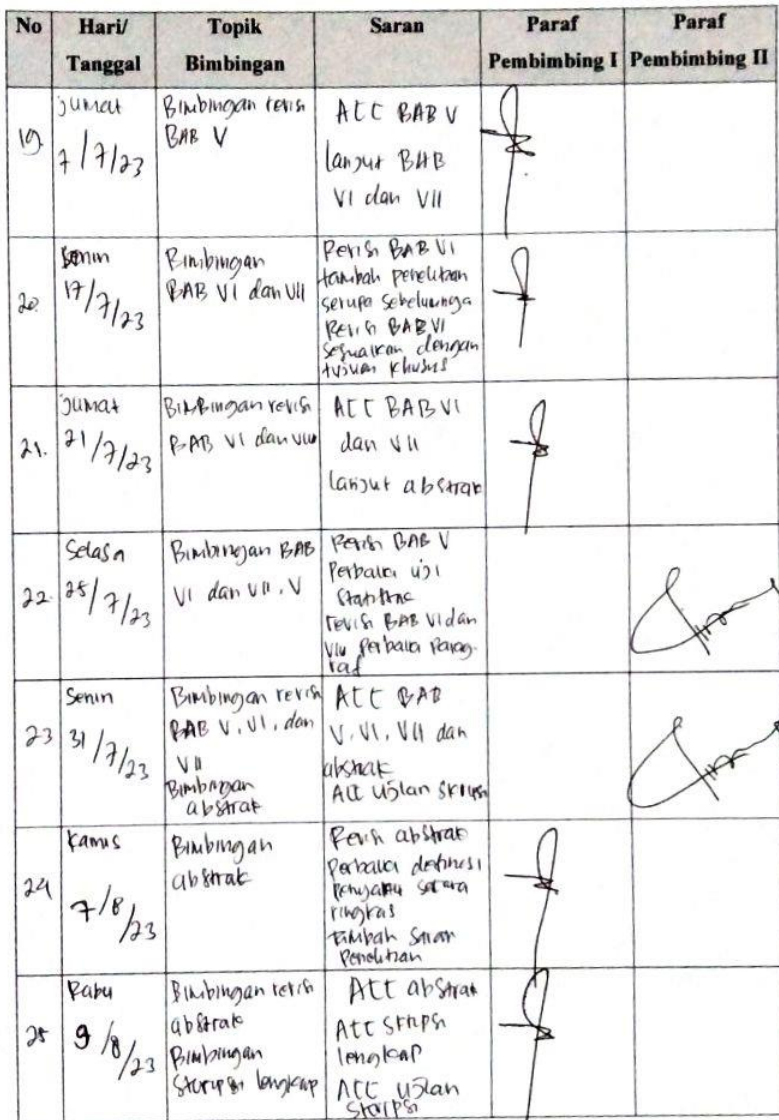 No Hari/ Topik Saran Paraf Paraf
Tanggal Bimbingan Pembimbing I Pembimbing II
19. Jumat 7/7/23
Bimbingan revisi
BAB V
ACC BAB V
lanjut BAB
VI dan VII
20. Senin 17/7/23
Bimbingan
BAB VI dan VII
Revisi BAB VI
tambah penelitian
serupa sebelumnya
Revisi BAB VI
sesuaikan dengan
tujuan khusus
21. Jumat 21/7/23
Bimbingan revisi
BAB VI dan VII
ACC BAB VI
dan VII
lanjut abstrak
22. Selasa 25/7/23
Bimbingan BAB
VI dan VII, V
Revisi BAB V
Perbaiki uji
statistic
revisi BAB VI dan
VII perbaiki Parag-
raf
23 Senin 31/7/23
Bimbingan revisi
BAB V, VI, dan
VII
Bimbingan
abstrak
ACC BAB
V, VI, VII dan
abstrak
ACC Ujian Skripsi
24 Kamis 7/8/23
Bimbingan
abstrak
Revisi abstrak
Perbaiki definisi
Penyakit secara
ringkas
tambah saran
Penelitian
25 Rabu 9/8/23
Bimbingan revisi
abstrak
Bimbingan
Skripsi lengkap
ACC abstrak
ACC Skripsi
lengkap
ACC Ujian
Skripsi